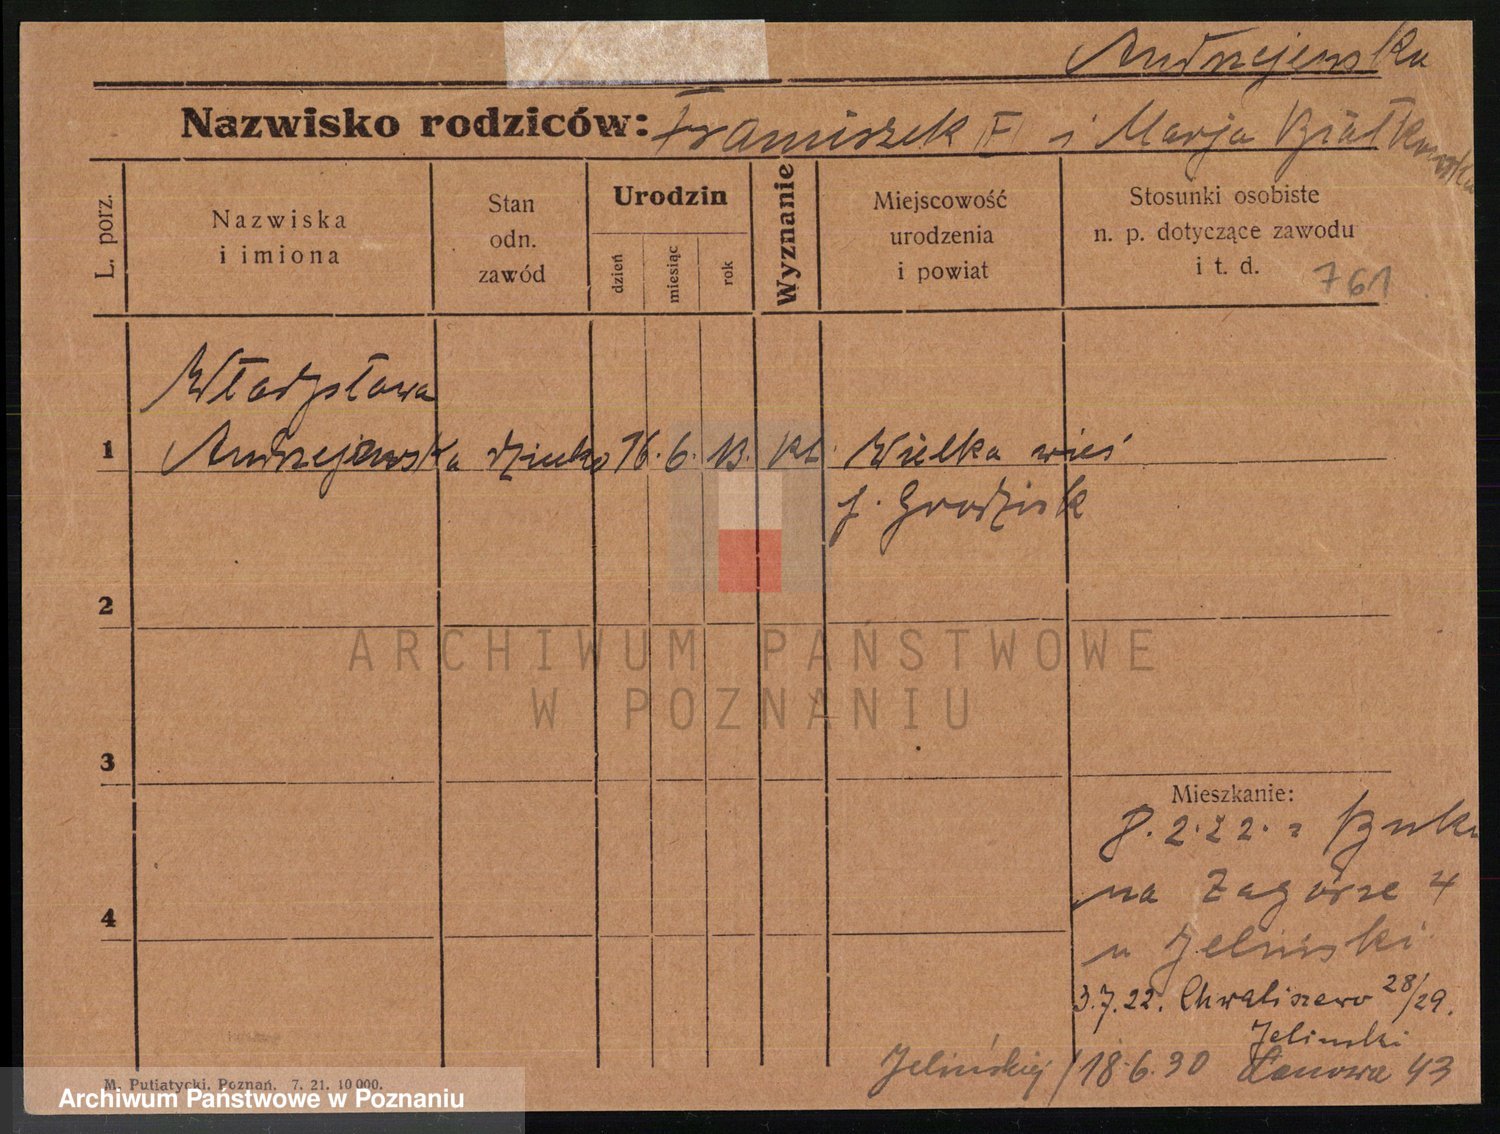 Andrzejewska
Nazwisko rodziców: Franciszek (F) i Marja Białkowska
L. porz.
Nazwiska
i imiona
Stan
odn.
zawód
Urodzin
dzień
miesiąc
rok
Wyznanie
Miejscowość
urodzenia
i powiat
Stosunki osobiste
n. p. dotyczące zawodu
i t. d.
761
Władysława
1 Andrzejewska dziecko 16. 6. 13. kt. Wielka wieś
p. Grodzisk
2
3
4
Mieszkanie:
8.2.22. z Buku
na Zagórze 4
u Jeliński
3.7.22. Chwaliszewo 28/29.
Jelinski
Jelińskiej / 18.6.30 Łanowa 43
M. Putiatycki, Poznań. 7. 21. 10 000.
ARCHIWUM PAŃSTWOWE
W POZNANIU
Archiwum Państwowe w Poznaniu